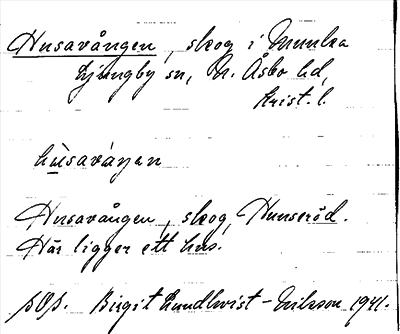 Husavången, skog i Munka
Ljungby sn, N. Åsbo hd,
Krist. l.
hùsavàŋan
Husavången, skog, Hunseröd.
Här ligger ett hus.
pOp. Birgit Lundkvist-Eriksson 1941.